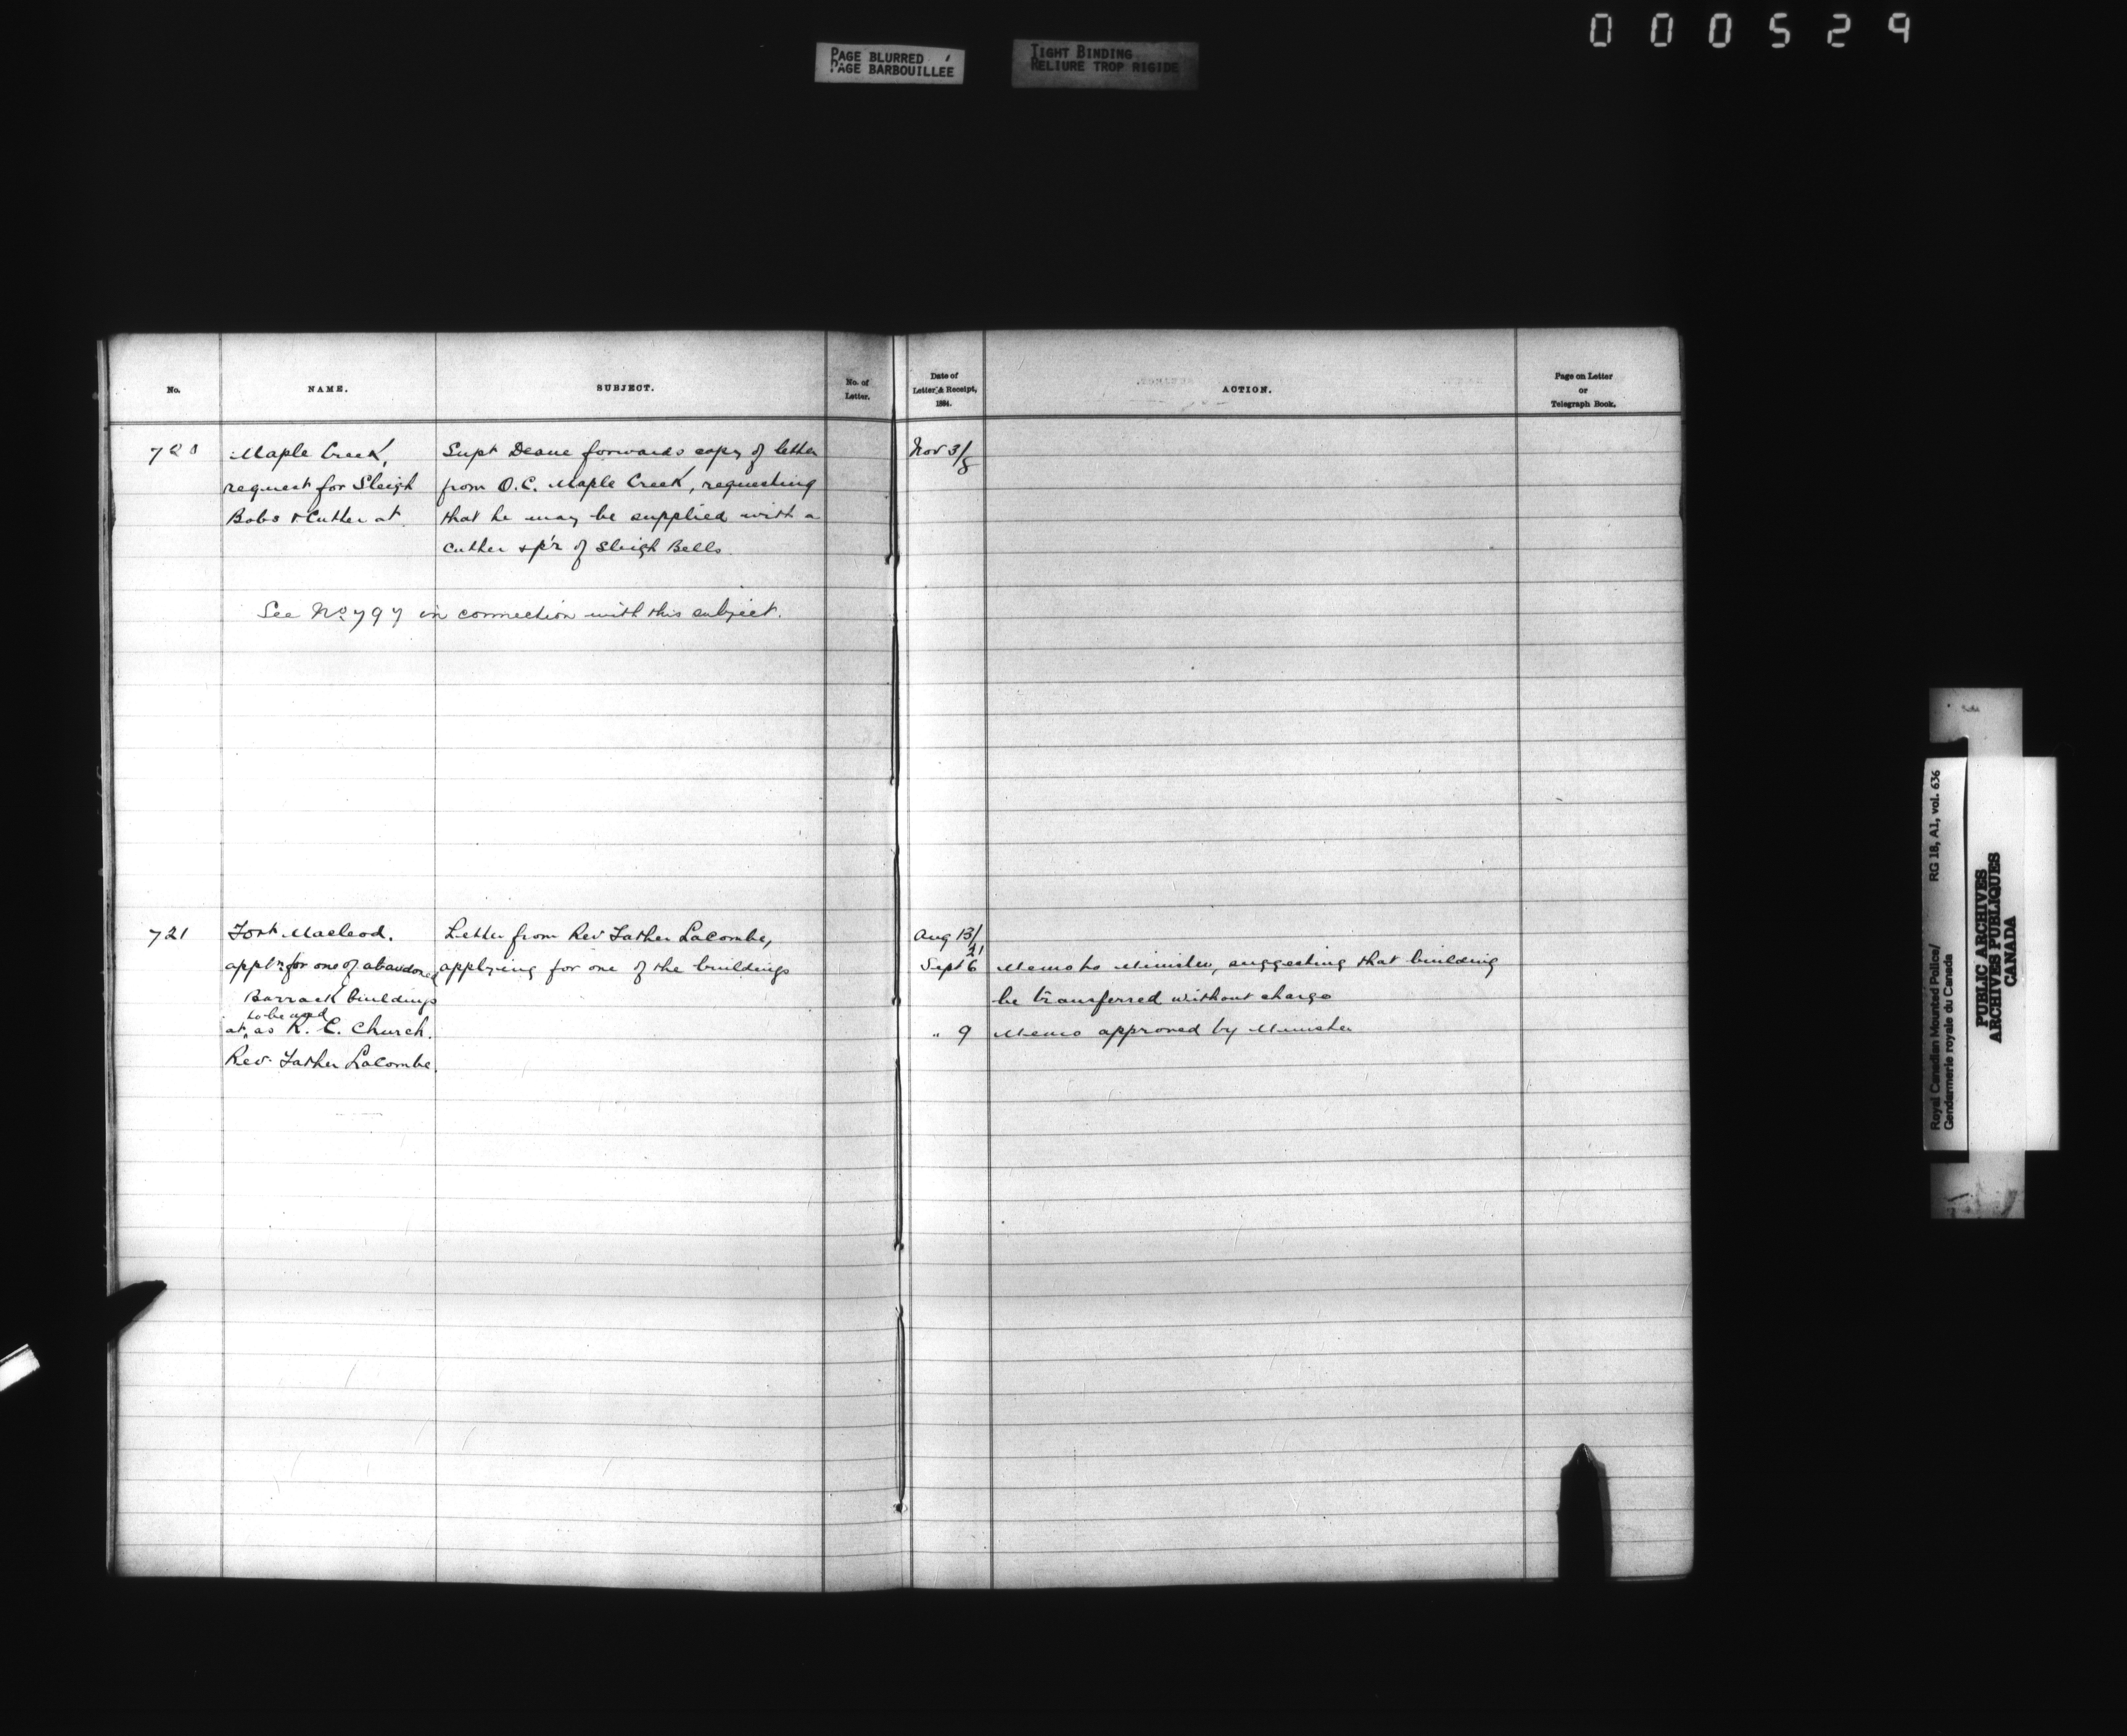 000529
PAGE BLURRED
PAGE BARBOUILLEE
TIGHT BINDING
RELIURE TROP RIGIDE
No.
NAME.
SUBJECT.
No. of
Letter.
Date of
Letter & Receipt,
1884.
ACTION.
Page on Letter
or
Telegraph Book.
720
Maple Creek,
request for Sleigh
Bobs & Cutter at
Supt Deane forwards copy of letter
from O.C. Maple Creek, requesting
that he may be supplied with a
Cutter & pr of Sleigh Bells
Nov 3/8
See No 797 in connection with this subject.
721
Fort Macleod.
appln for one of abandoned
Barrack buildings
to be used
at, as R. C. Church.
Rev. Father Lacombe.
Letter from Rev Father Lacombe,
applying for one of the buildings
Aug 13/21
Sept 6 Memo to Minister, suggesting that building
be transferred without charge
" 9 Memo approved by Minister
Royal Canadian Mounted Police/ RG 18, A1, vol. 636
Gendarmerie royale du Canada
PUBLIC ARCHIVES
ARCHIVES PUBLIQUES
CANADA